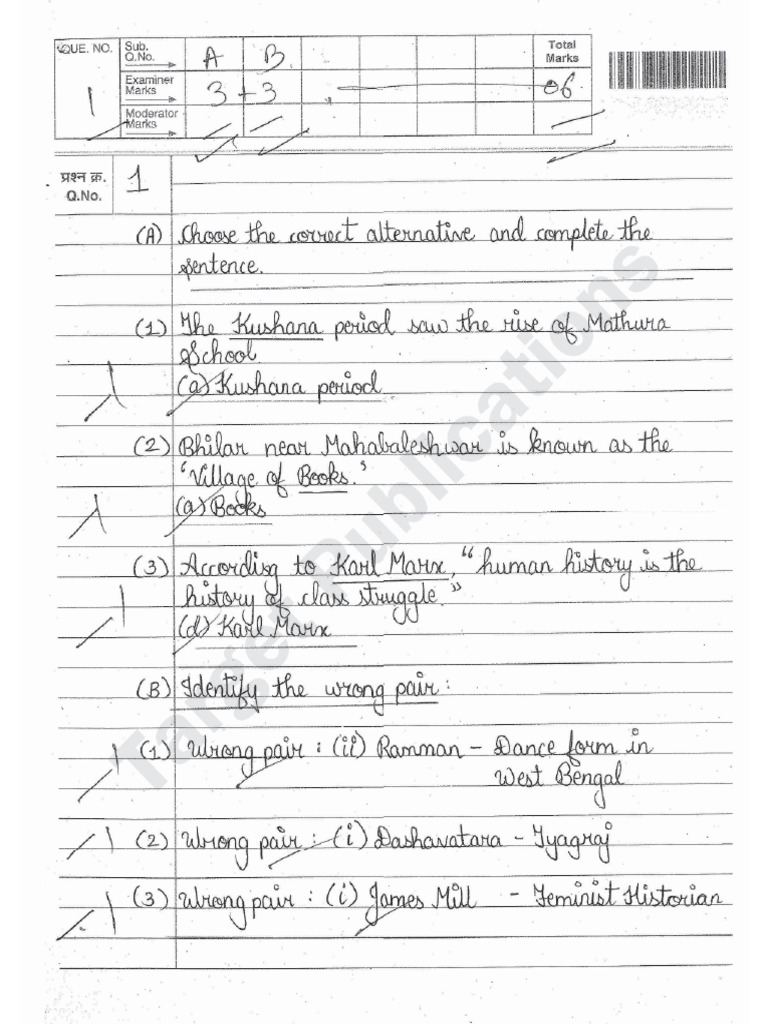 QUE. NO. Sub. Q.No. A B Total Marks
1 Examiner Marks 3 + 3 06
Moderator Marks
प्रश्न क्र. Q.No. 1
(A) Choose the correct alternative and complete the
sentence.
(1) The Kushana period saw the rise of Mathura
School
1 (a) Kushana period
(2) Bhilar near Mahabaleshwar is known as the
'Village of Books.'
1 (a) Books
(3) According to Karl Marx, "human history is the
1 history of class struggle."
(d) Karl Marx
(B) Identify the wrong pair:
1 (1) Wrong pair : (ii) Ramman - Dance form in
West Bengal
1 (2) Wrong pair : (i) Dashavatara - Tyagraj
1 (3) Wrong pair : (i) James Mill - Feminist Historian
Target Publications